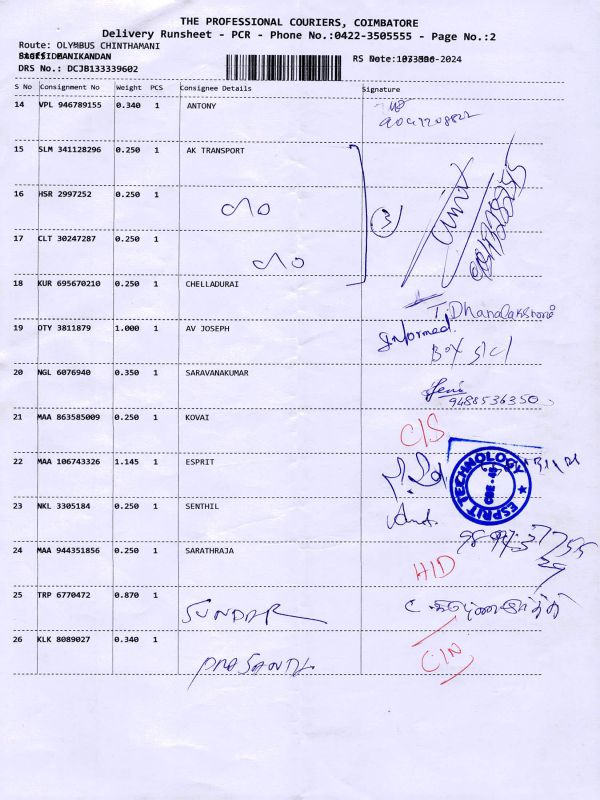 THE PROFESSIONAL COURIERS, COIMBATORE
Delivery Runsheet - PCR - Phone No.:0422-3505555 - Page No.:2
Route: OLYMBUS CHINTHAMANI
DRS No.: DCJB133339602
S No Consignment No Weight PCS Consignee Details Signature
14 VPL 946789155 0.340 1 ANTONY
15 SLM 341128296 0.250 1 AK TRANSPORT
16 HSR 2997252 0.250 1 c/o
3
17 CLT 30247287 0.250 1 c/o
18 KUR 695670210 0.250 1 CHELLADURAI
T. Dhanalakshmi
19 OTY 3811879 1.000 1 AV JOSEPH Informed
Box S/C/
20 NGL 6076940 0.350 1 SARAVANAKUMAR Jeni
9488536350
21 MAA 863585009 0.250 1 KOVAI C/S
22 MAA 106743326 1.145 1 ESPRIT
ESPRIT TECHNOLOGY
23 NKL 3305184 0.250 1 SENTHIL
24 MAA 944351856 0.250 1 SARATHRAJA H/D
25 TRP 6770472 0.870 1 SUNDAR
26 KLK 8089027 0.340 1 PRASANTH C/N